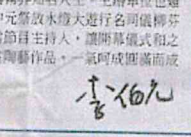 中元祭放水燈大遊行名司儀柳芬
節目主持人，讓開幕儀式和之
陶藝作品，一氣呵成圓滿而成
李伯元